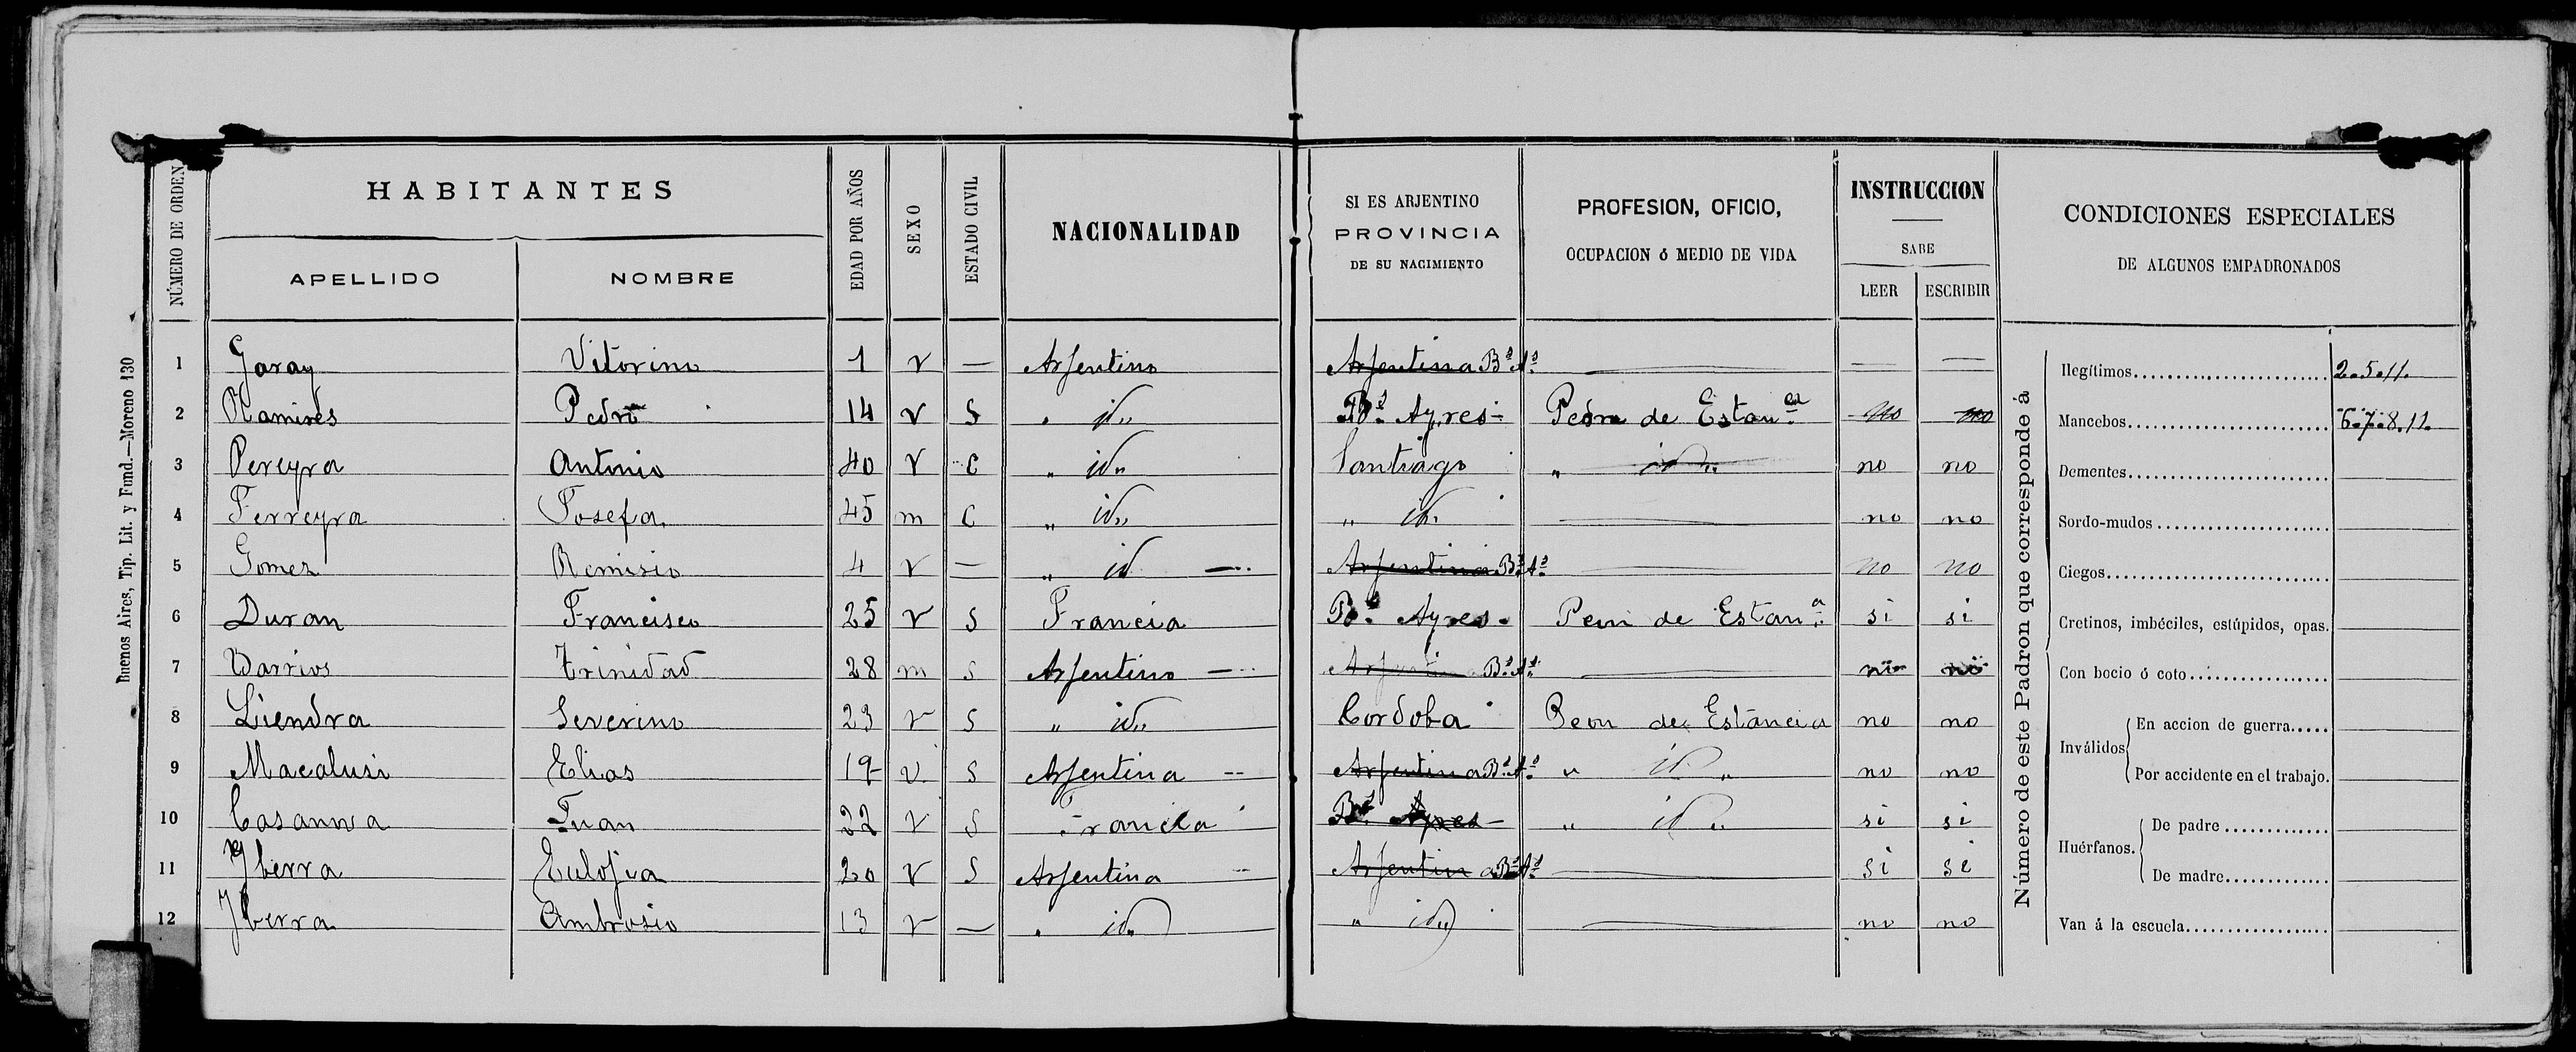 Buenos Aires, Tip. Lit. y Fund.—Moreno 130
NÚMERO DE ORDEN
HABITANTES
APELLIDO NOMBRE
EDAD POR AÑOS
SEXO
ESTADO CIVIL
NACIONALIDAD
SI ES ARJENTINO
PROVINCIA
DE SU NACIMIENTO
PROFESION, OFICIO,
OCUPACION ó MEDIO DE VIDA
INSTRUCCION
SABE
LEER ESCRIBIR
CONDICIONES ESPECIALES
DE ALGUNOS EMPADRONADOS
1 Garay Vitorino 1 v — Arjentino Arjentina Bs As — — —
2 Ramires Pedro 14 v S " id" Bs Ayres Peon de Estana no no
3 Pereyra Antonio 40 v C " id" Santiago " id" no no
4 Ferreyra Josefa 45 m C " id" " id. — no no
5 Gomez Remisio 4 v — " id — Arjentina Bs As — no no
6 Duran Francisco 25 v S Francia Bs Ayres Peon de Estana si si
7 Barrios Trinidad 28 m S Arjentino — Arjentina Bs As — no no
8 Liendra Severino 23 v S " id" Cordoba Peon de Estancia no no
9 Macalusi Elias 19 v S Arjentina -- Arjentina Bs As " id " no no
10 Casanova Juan 22 v S Francia Bs Ayres " id " si si
11 Yberra Eulojia 20 v S Arjentina Arjentina Bs As — si si
12 Yberra Ambrosio 13 v — " id" " id" — no no
Número de este Padron que corresponde á
Ilegítimos 2.5.11.
Mancebos 6.7.8.11.
Dementes
Sordo-mudos
Ciegos
Cretinos, imbéciles, estúpidos, opas.
Con bocio ó coto
Inválidos
En accion de guerra
Por accidente en el trabajo.
Huérfanos.
De padre
De madre
Van á la escuela